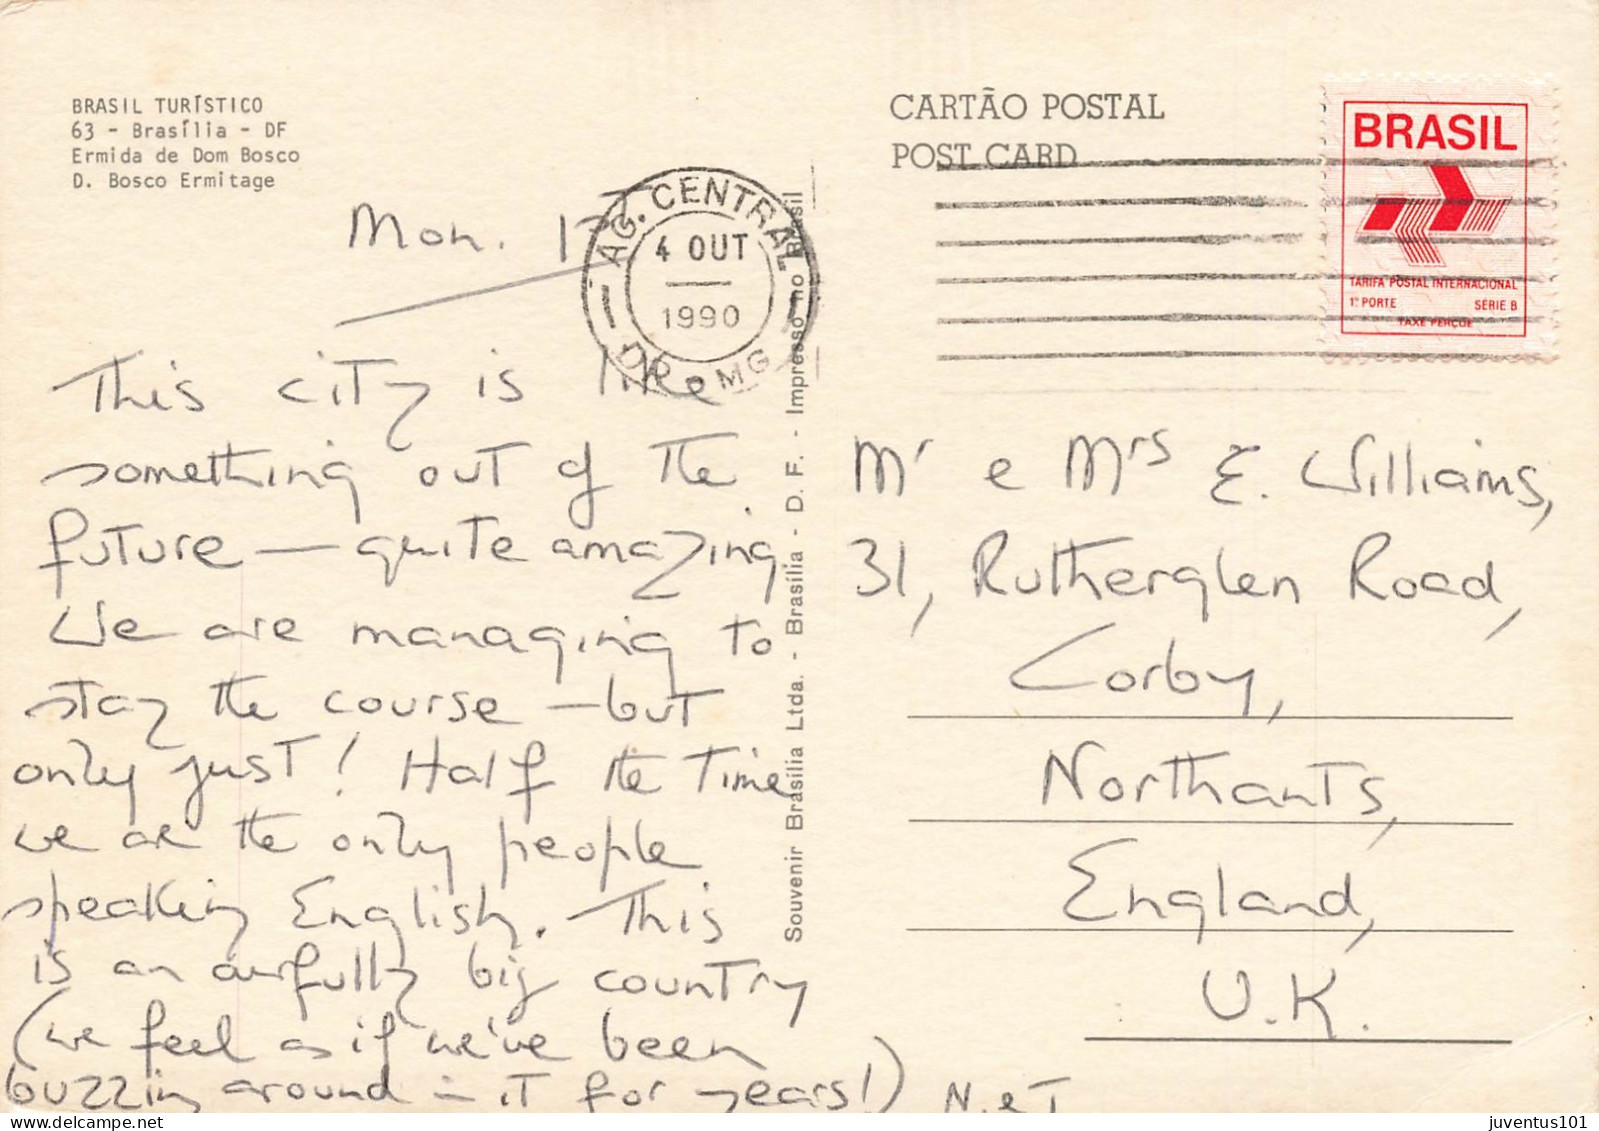 BRASIL TURÍSTICO
63 - Brasília - DF
Ermida de Dom Bosco
D. Bosco Ermitage
CARTÃO POSTAL
POST CARD
BRASIL
TARIFA POSTAL INTERNACIONAL
1º PORTE SÉRIE B
TAXE PERÇUE
AG. CENTRAL
4 OUT
1990
DR MG
Mon.
This city is like
something out of the
future — quite amazing.
We are managing to
stay the course — but
only just! Half the time
we are the only people
speaking English. This
is an awfully big country
(we feel as if we've been
buzzing around in it for years!) N. e T
Souvenir Brasília Ltda. - Brasília - D. F. - Impresso no Brasil
Mr e Mrs E. Williams,
31, Rutherglen Road,
Corby,
Northants,
England,
U.K.
juventus101